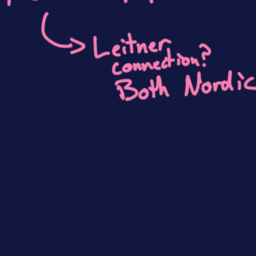 Leitner
connection?
Both Nordic